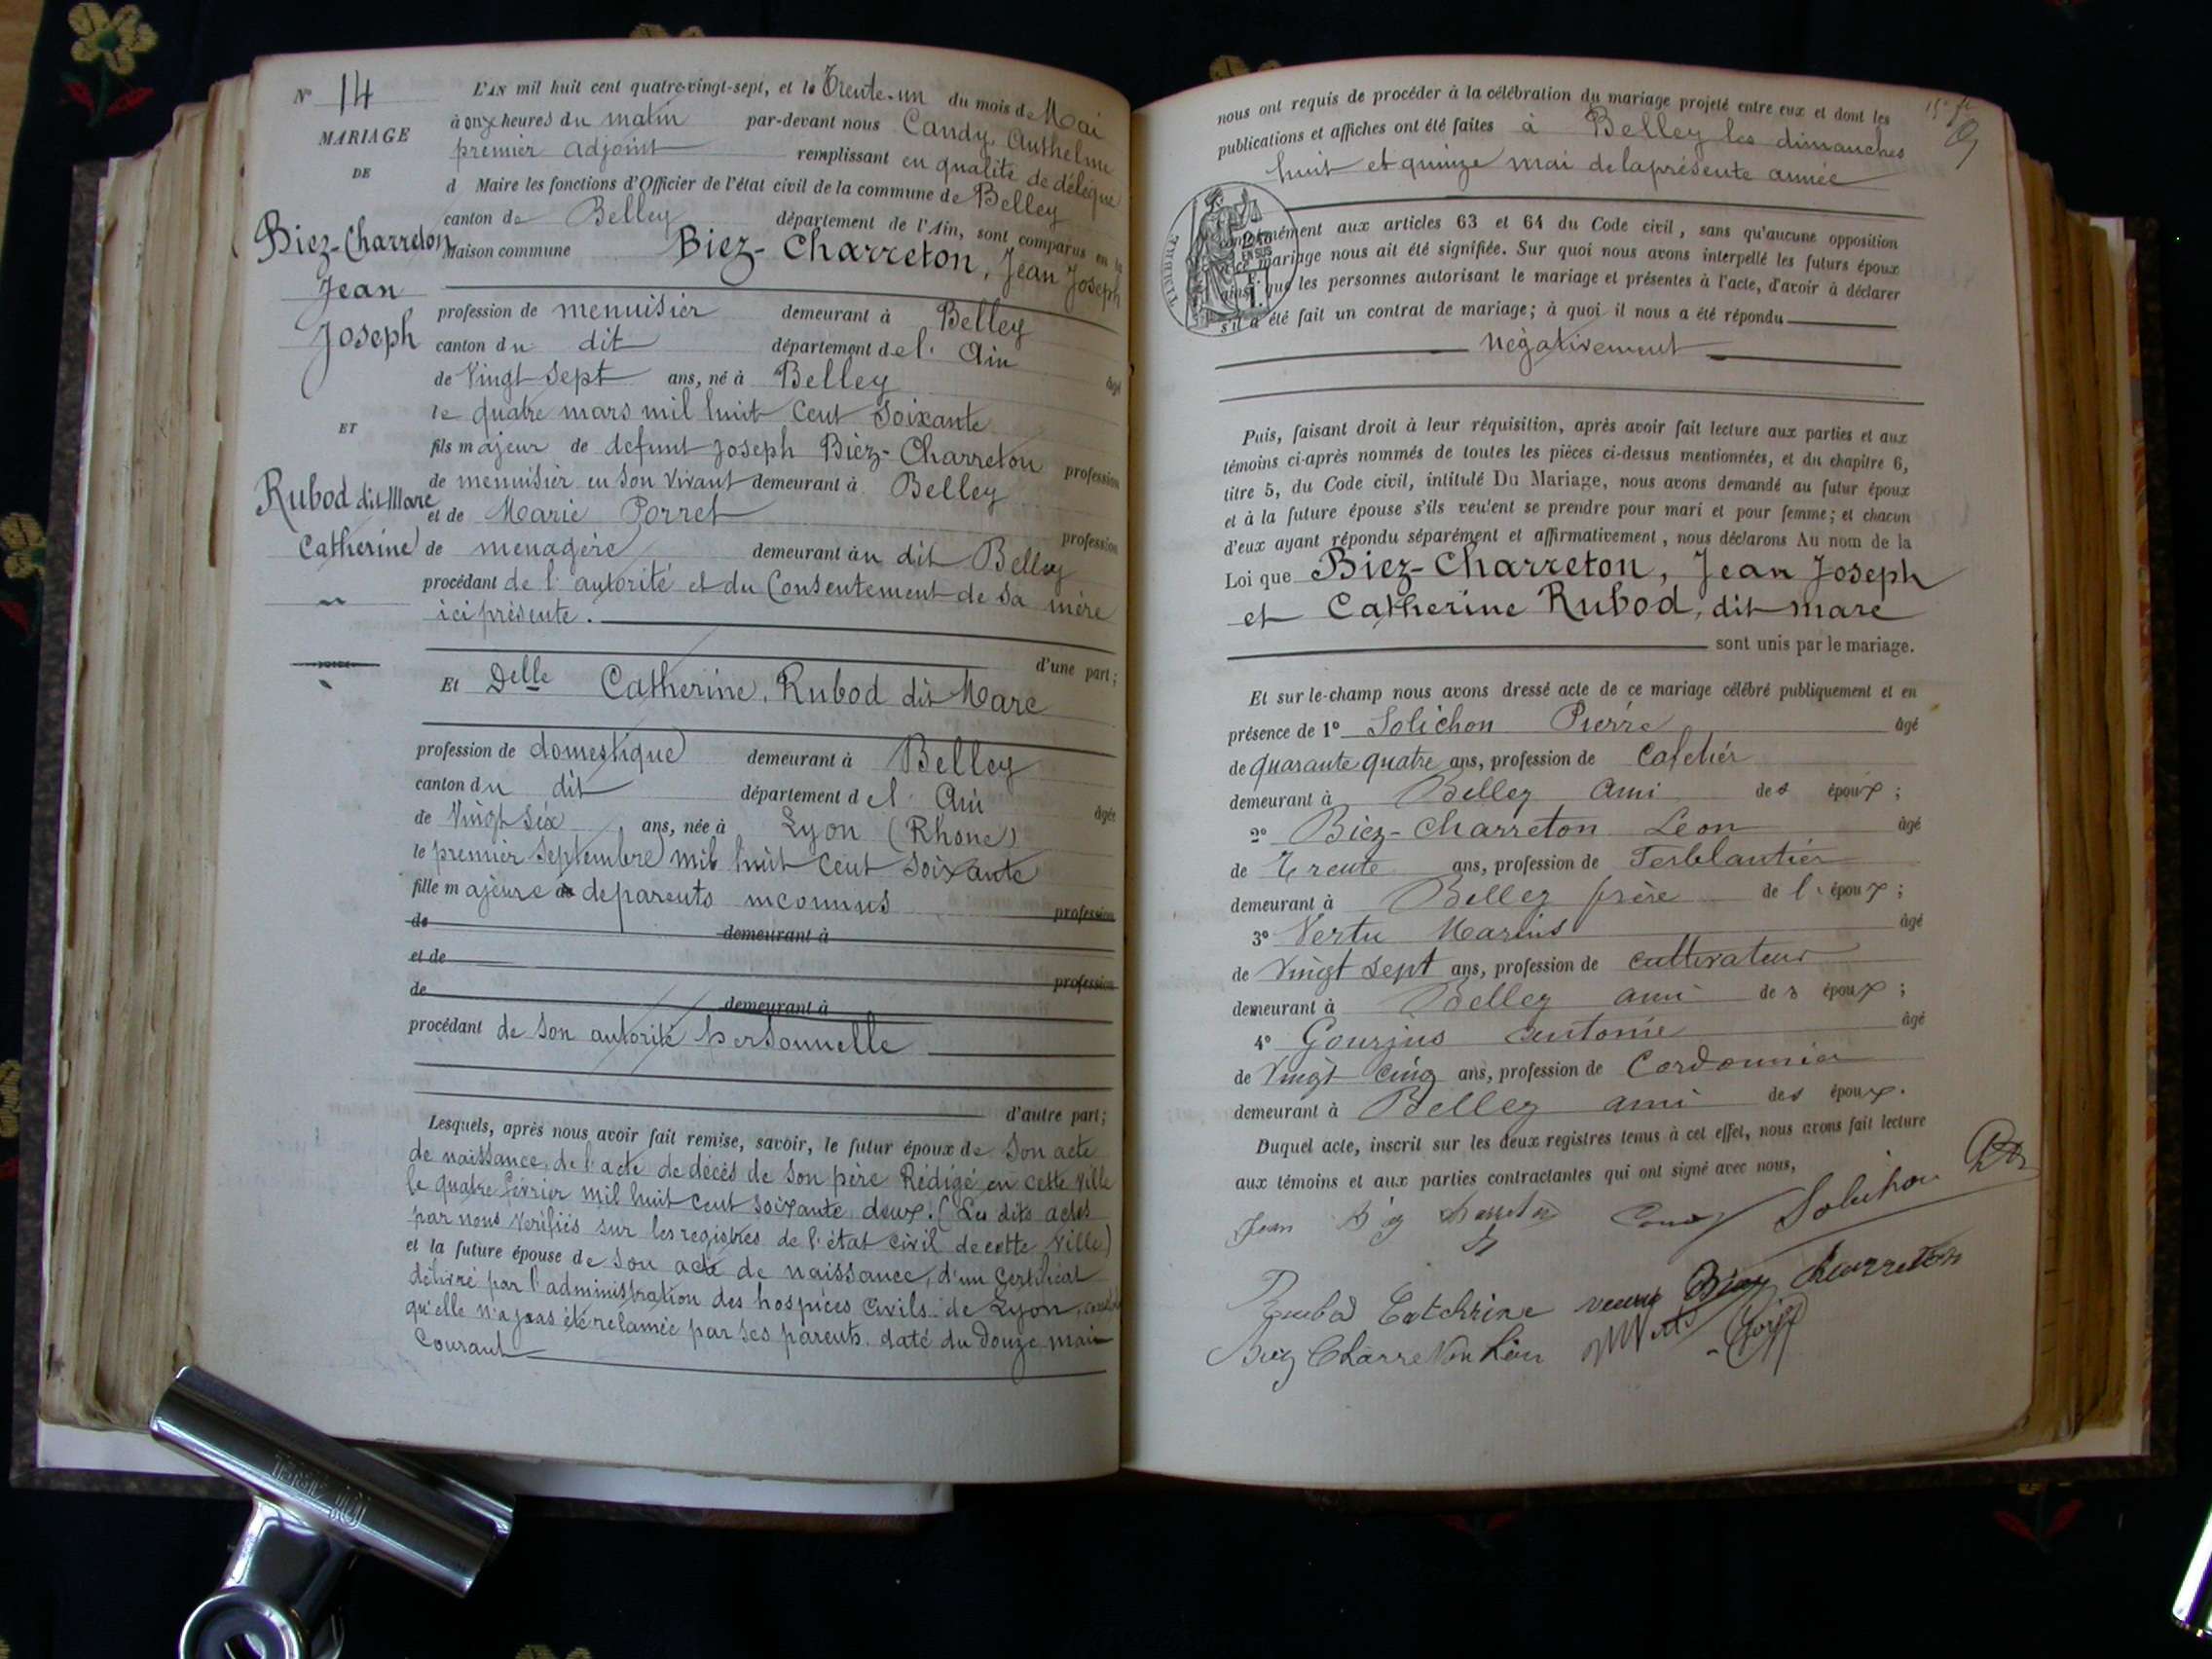 N° 14
MARIAGE
DE
Biez-Charreton
Jean
Joseph
ET
Rubod dit Marc
Catherine
L'AN mil huit cent quatre-vingt-sept, et le Trente-un du mois de Mai
à onze heures du matin par-devant nous Candy, Anthelme
premier adjoint remplissant en qualité de délégué
d Maire les fonctions d'Officier de l'état civil de la commune de Belley
canton de Belley département de l'Ain, sont comparus en la
Maison commune Biez-Charreton, Jean Joseph
profession de menuisier demeurant à Belley
canton du dit département de l'Ain
de Vingt sept ans, né à Belley âgé
le quatre mars mil huit cent soixante
fils majeur de defunt Joseph Biez-Charreton profession
de menuisier en son vivant demeurant à Belley
et de Marie Porret profession
de menagère demeurant au dit Belley
procédant de l'autorité et du Consentement de sa mère
ici présente.
d'une part;
Et Delle Catherine, Rubod dit Marc
profession de domestique demeurant à Belley
canton du dit département de l'Ain
de Vingt six ans, née à Lyon (Rhone) âgée
le premier Septembre mil huit cent soixante
fille majeure de parents inconnus profession
de demeurant à
et de profession
de demeurant à
procédant de son autorité personnelle
d'autre part;
Lesquels, après nous avoir fait remise, savoir, le futur époux de son acte
de naissance, de l'acte de décès de son père Rédigé en cette ville
le quatre février mil huit cent soixante deux. (Les dits actes
par nous vérifiés sur les registres de l'état civil de cette ville)
et la future épouse de son acte de naissance, d'un certificat
délivré par l'administration des hospices civils de Lyon,
qu'elle n'a pas été reclamée par ses parents. daté du douze mai
Courant
nous ont requis de procéder à la célébration du mariage projeté entre eux et dont les
publications et affiches ont été faites à Belley les dimanches
huit et quinze mai de la présente année
TIMBRE
conformément aux articles 63 et 64 du Code civil, sans qu'aucune opposition
à ce mariage nous ait été signifiée. Sur quoi nous avons interpellé les futurs époux
ainsi que les personnes autorisant le mariage et présentes à l'acte, d'avoir à déclarer
s'il a été fait un contrat de mariage; à quoi il nous a été répondu
négativement
Puis, faisant droit à leur réquisition, après avoir fait lecture aux parties et aux
témoins ci-après nommés de toutes les pièces ci-dessus mentionnées, et du chapitre 6,
titre 5, du Code civil, intitulé Du Mariage, nous avons demandé au futur époux
et à la future épouse s'ils veulent se prendre pour mari et pour femme; et chacun
d'eux ayant répondu séparément et affirmativement, nous déclarons Au nom de la
Loi que Biez-Charreton, Jean Joseph
et Catherine Rubod, dit marc
sont unis par le mariage.
Et sur-le-champ nous avons dressé acte de ce mariage célébré publiquement et en
présence de 1° Solichon Pierre âgé
de quarante quatre ans, profession de cafetier
demeurant à Belley ami des époux;
2° Biez-Charreton Leon âgé
de Trente ans, profession de Ferblantier
demeurant à Belley frère de l'époux;
3° Vertu Marius âgé
de Vingt sept ans, profession de cultivateur
demeurant à Belley ami des époux;
4° Gourjus antoine âgé
de Vingt cinq ans, profession de Cordonnier
demeurant à Belley ami des époux.
Duquel acte, inscrit sur les deux registres tenus à cet effet, nous avons fait lecture
aux témoins et aux parties contractantes qui ont signé avec nous,
Jean Candy Solichon
Catchrine veuve Biez Charreton
Biez Charreton Léon